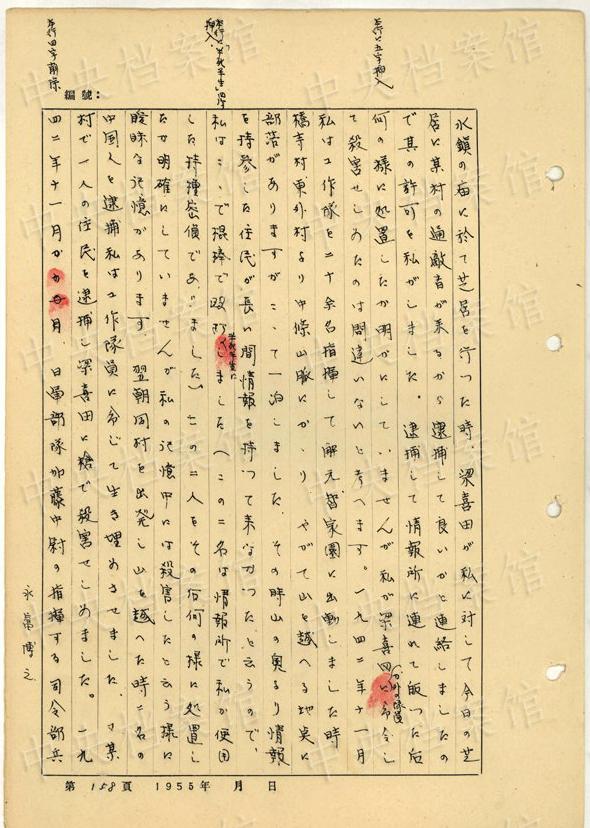 本行ニ五字挿入
本行ニ「半死半生」四字挿入
本行四字削除
編號：
永鎮の為に於て芝居を行つた時、梁喜田が私に対して今日の芝
居に某村の通敵者が来るから逮捕して良いかと連絡しましたの
で其の許可を私がしました。逮捕して情報所に連れて皈つた后
何の様に処置したか明かにしていませんが私が梁喜田（か外の隊員）に命令し
て殺害せしめたのは間違いないと考へます。一九四二年十一月
私は工作隊を二十余名指揮して解元督家園に出動しました時
橋寺村東外村より中條山脈にかゝり、やがて山を越へる地点に
部落がありますがここで一泊しました。その時山の奥より情報
を持参した住民が長い間情報を持つて来なかつたと云うので、
私はここで棍棒で殴打（半死半生に）しました（この二名は情報所で私が使用
した持種密偵であゞました）。この二人をその后何の様に処置し
たか明確にしていませんが私の記憶中には殺害したと云う様に
曖昧な記憶があります。翌朝同村を出発し山を越へた時二名の
中国人を逮捕私は工作隊員に命じて生き埋めさせました、又某
村で一人の住民を逮捕し梁喜田に槍で殺害せしめました。一九
四二年十一月か 月、日軍部隊加藤中尉の指揮する司令部兵
永富博之
第 158 頁 1955年 月 日
中央档案馆